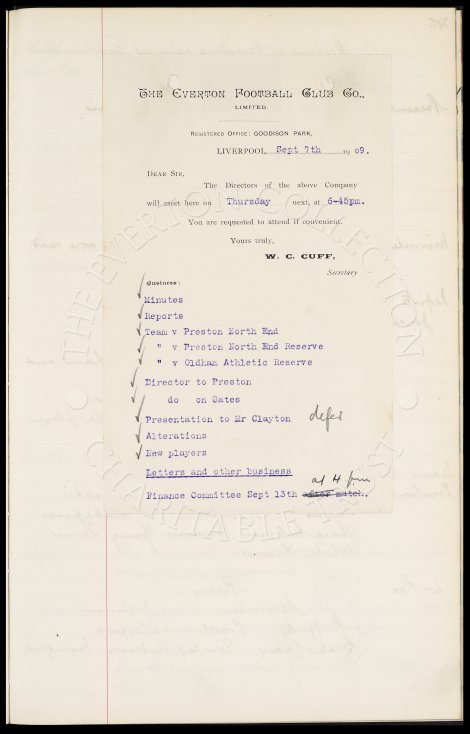 THE EVERTON FOOTBALL CLUB CO.,
LIMITED.
REGISTERED OFFICE: GOODISON PARK,
LIVERPOOL, Sept 7th 1909.
DEAR SIR,
The Directors of the above Company
will meet here on Thursday next, at 6-45pm.
You are requested to attend if convenient.
Yours truly,
W. C. CUFF,
Secretary
Business:
Minutes
Reports
Team v Preston North End
" v Preston North End Reserve
" v Oldham Athletic Reserve
Director to Preston
do on Gates
Presentation to Mr Clayton defer
Alterations
New players
Letters and other business
at 4 pm
Finance Committee Sept 13th after match.
THE EVERTON COLLECTION
CHARITABLE TRUST